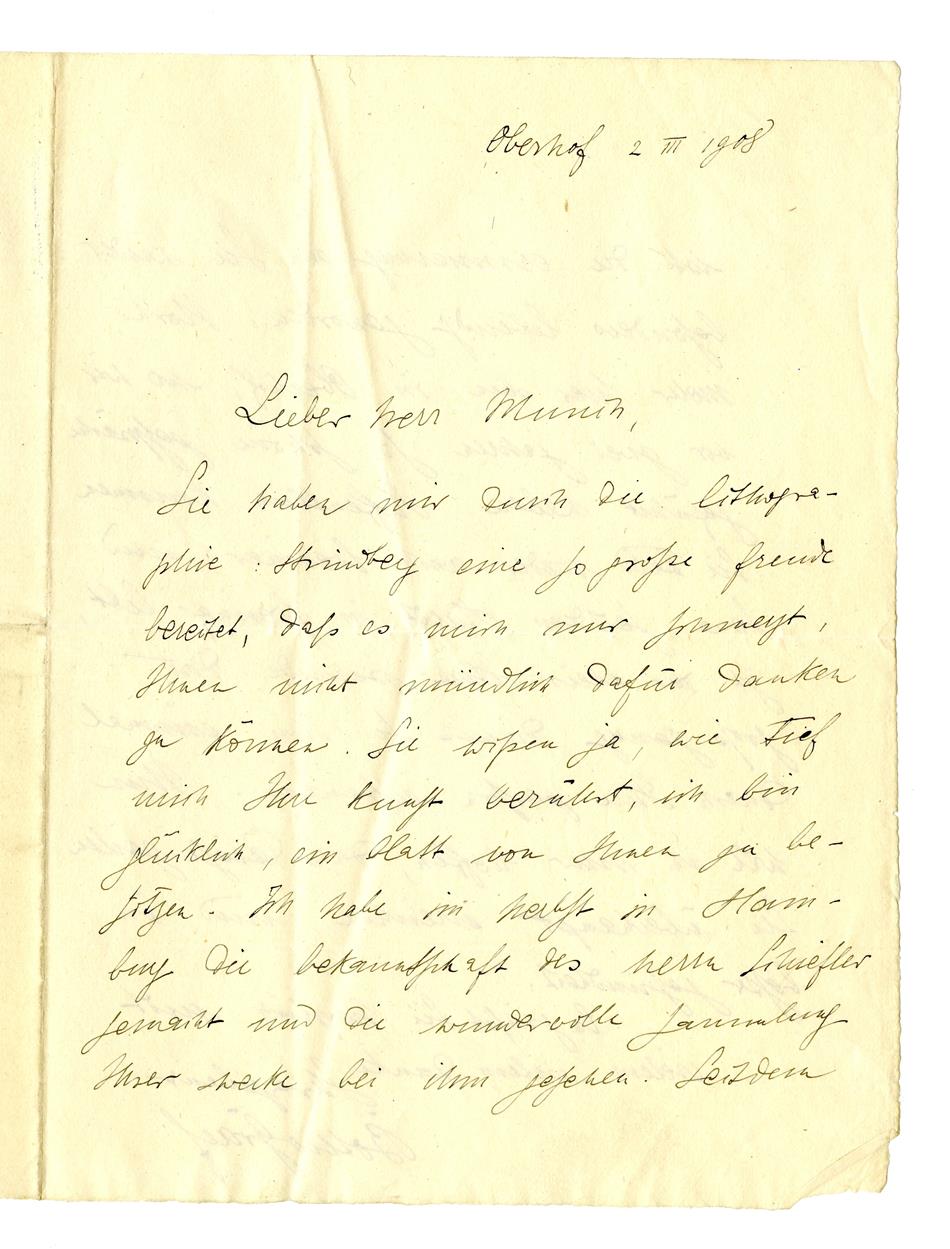 Oberhof 2 III 1908
Lieber herr Munch,
Sie haben mir durch die lithogra-
phie : Strindberg eine so große freude
bereitet, daß es mich nur schmerzt,
Ihnen nicht mündlich dafür danken
zu können. Sie wißen ja, wie tief
mich Ihre kunst berührt, ich bin
glücklich, ein blatt von Ihnen zu be-
sitzen. Ich habe im herbst in Ham-
burg die bekanntschaft des herrn Schiefler
gemacht und die wundervolle sammlung
Ihrer werke bei ihm gesehen. Seitdem